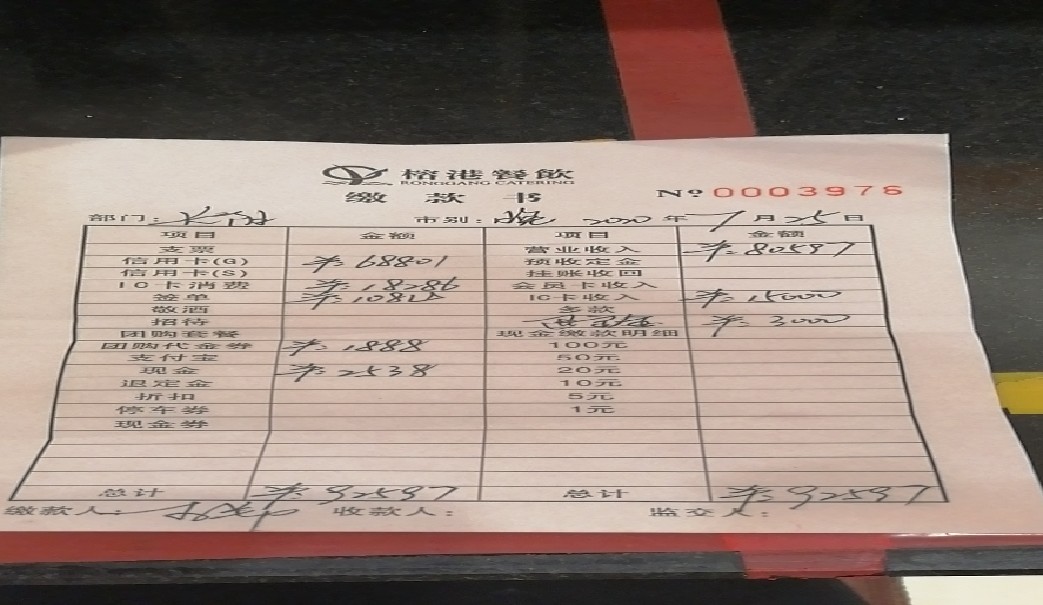 榕港餐飲
RONGGANG CATERING
缴款书
№ 0003976
部门: 市别: 晚 2020年7月25日
项目 金额 项目 金额
支票 营业收入 ¥:80597
信用卡(G) ¥:68801 预收定金
信用卡(S) 挂账收回
IC卡消费 ¥:18286 会员卡收入
签单 IC卡收入 ¥:15000
敬酒 多款
招待 ¥:3000
团购套餐 现金缴款明细
团购代金券 ¥:1888 100元
支付宝 50元
现金 ¥:2538 20元
退定金 10元
折扣 5元
停车券 1元
现金券
总计 ¥:92597 总计 ¥:92597
缴款人: 收款人: 监交人: